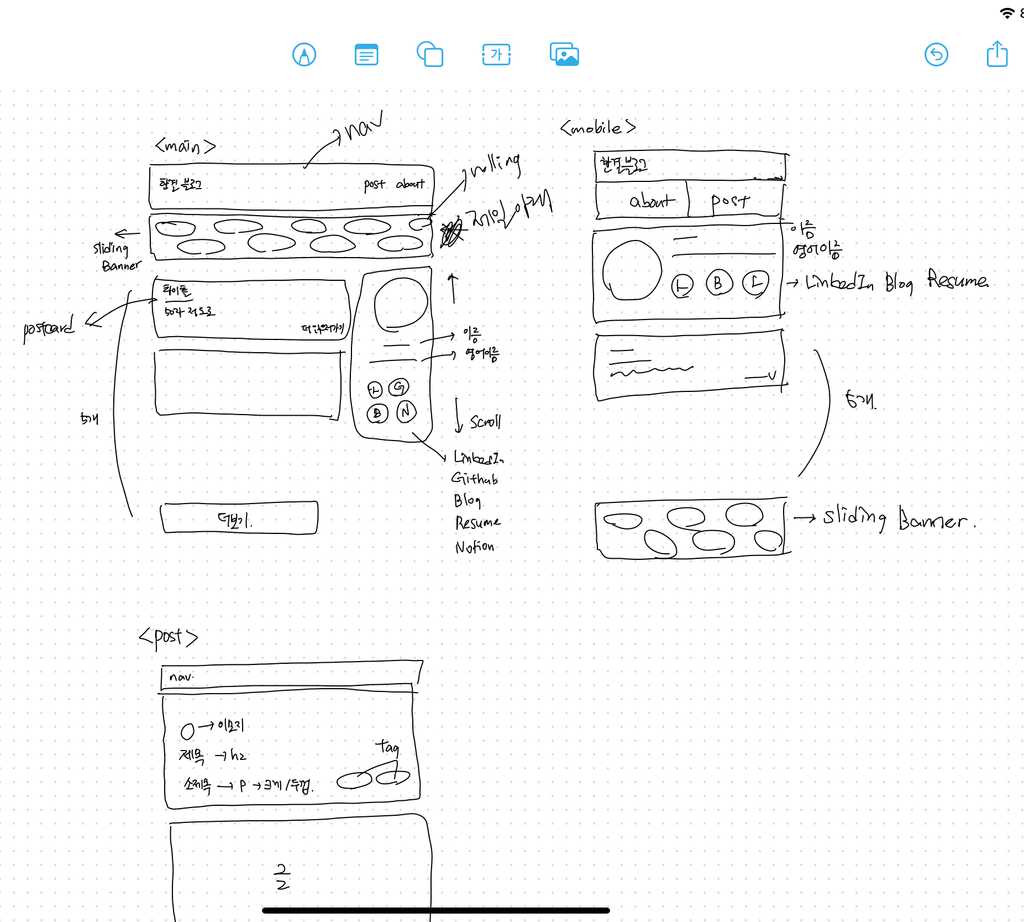 8
가
<main>
nav
한결 블로그
post about
rolling
제일 아래
sliding
Banner
타이틀
50자 정도로
더 알아가기
postcard
5개
이름
영어이름
I
G
B
N
scroll
LinkedIn
Github
Blog
Resume
Notion
더보기.
<mobile>
한결 블로그
about
post
이름
영어이름
I
B
L
LinkedIn Blog Resume.
5개.
sliding Banner.
<post>
nav.
이모지
제목 → h2
소제목 → p → 크게/두껍.
Tag
글